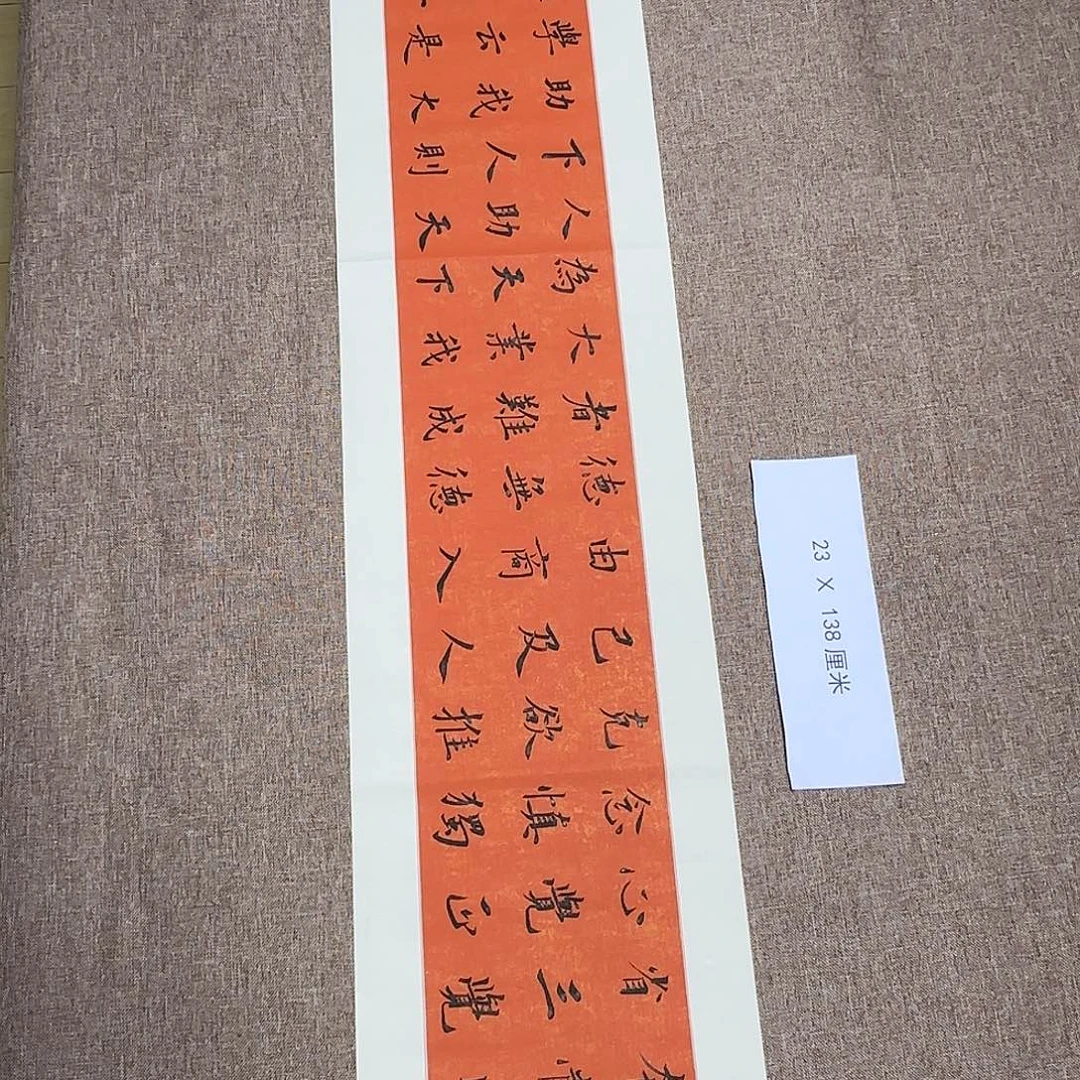 學助下人為大者德由己克念心省
云我人助天業難無商及欲慎覺三
是大則天下我成德入人推獨正覺
23 X 138厘米